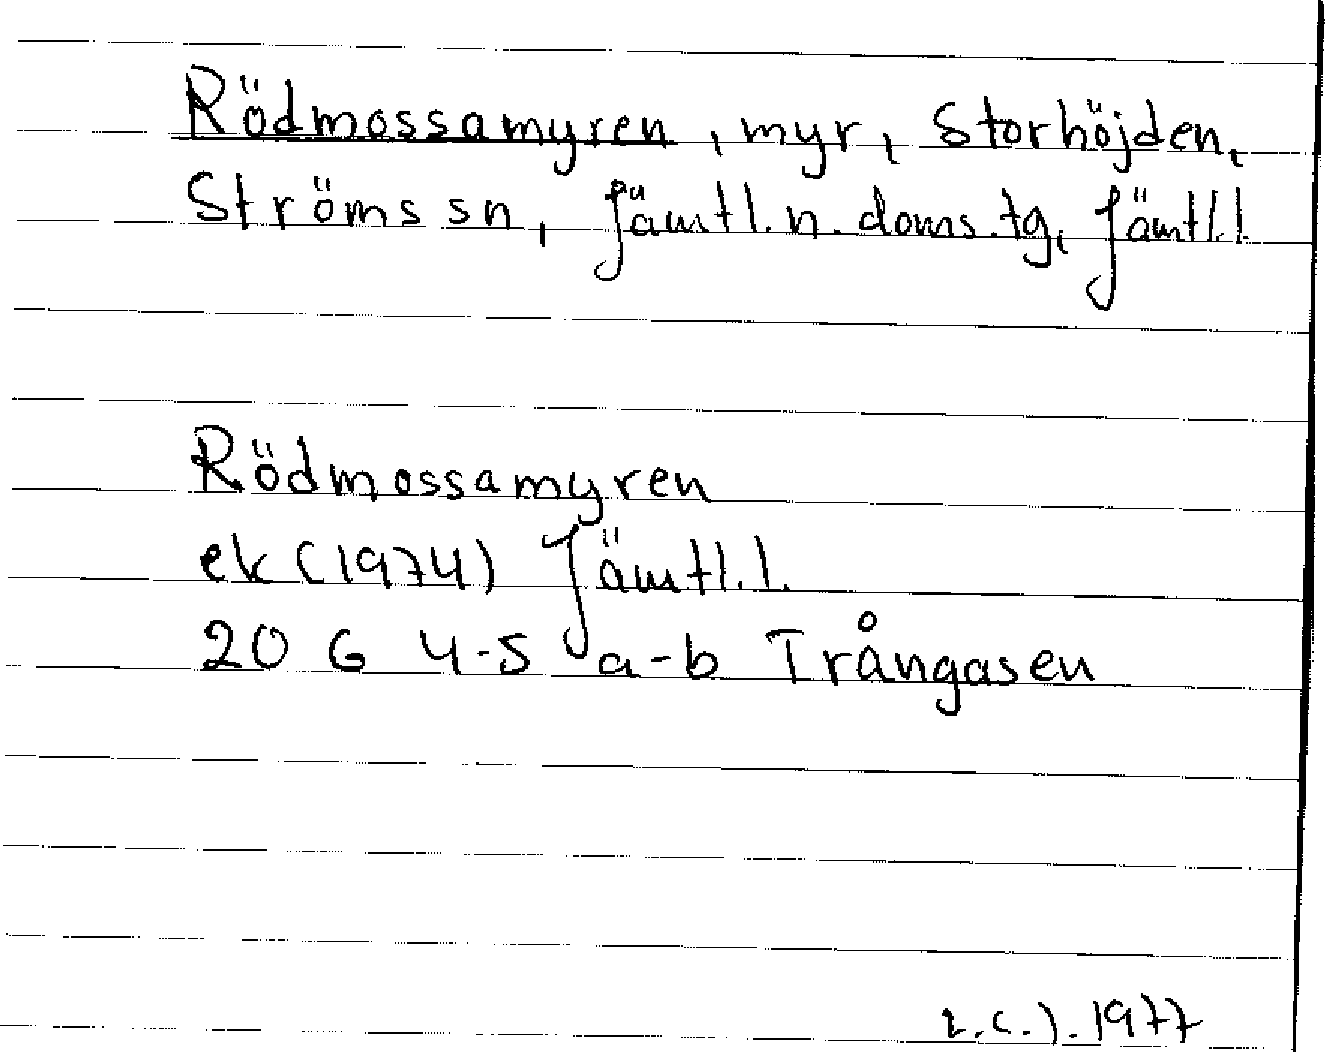 Rödmossamyren, myr, Storhöjden,
Ströms sn, Jämtl. n. doms. tg, Jämtl. l.
Rödmossamyren
ek (1974) Jämtl. l.
20 G 4-5 a-b Trångasen
1977